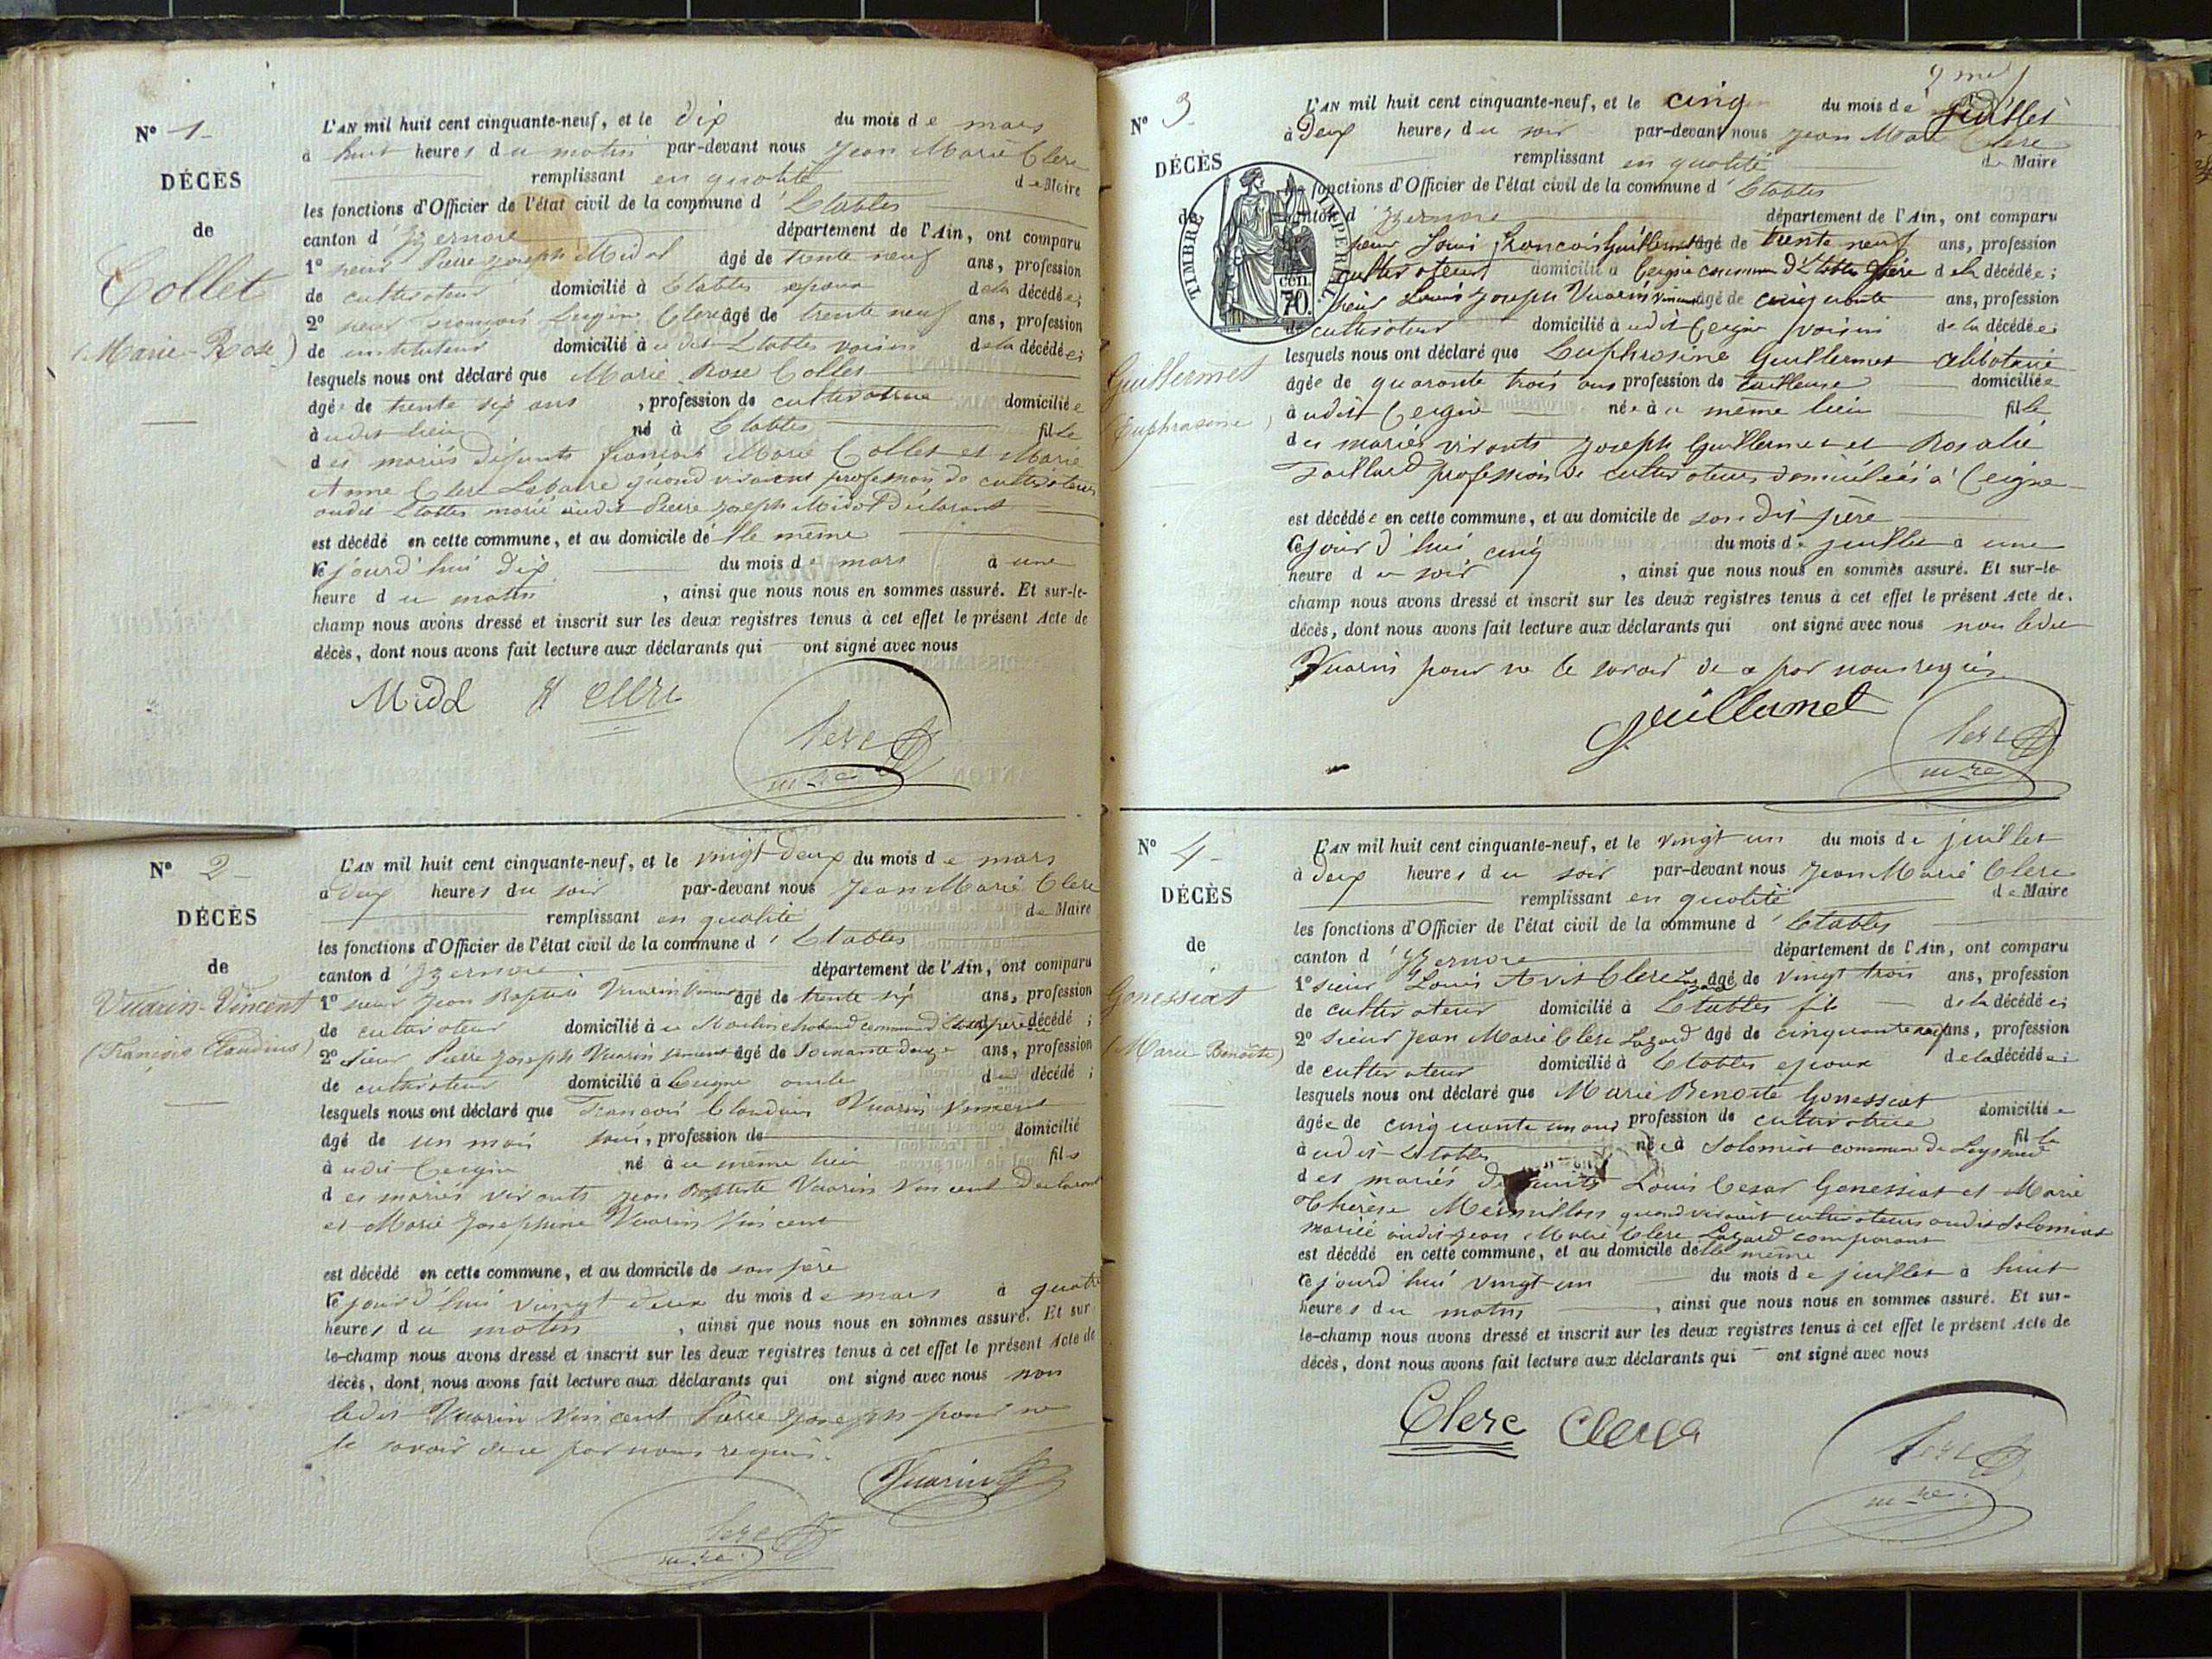 N° 1
DÉCÈS
de
Collet
(Marie-Rose)
L'AN mil huit cent cinquante-neuf, et le dix du mois de mars
à huit heures du matin par-devant nous Jean Marie Clerc
remplissant en qualité de Maire
les fonctions d'Officier de l'état civil de la commune d'Etables
canton d'Izernore département de l'Ain, ont comparu
1° sieur Pierre Joseph Midol âgé de trente neuf ans, profession
de cultivateur domicilié à Etables epoux de la décédée;
2° sieur François Eugène Clerc âgé de trente neuf ans, profession
de instituteur domicilié à udit Etables voisin de la décédée;
lesquels nous ont déclaré que Marie Rose Collet
âgé de trente six ans, profession de cultivatrice domiciliée
à udit lieu né à Etables fille
des mariés défunts François Marie Collet et Marie
Anne Clerc quand vivaient profession de cultivateurs
audit Etables marié audit Pierre Joseph Midol déclarant
est décédé en cette commune, et au domicile de lle même
cejourd'hui dix du mois de mars à une
heure du matin, ainsi que nous nous en sommes assuré. Et sur-le-
champ nous avons dressé et inscrit sur les deux registres tenus à cet effet le présent Acte de
décès, dont nous avons fait lecture aux déclarants qui ont signé avec nous
Midol Clerc
Clerc
mre
N° 2
DÉCÈS
de
Vuarin-Vincent
(François Claudius)
L'AN mil huit cent cinquante-neuf, et le vingt-deux du mois de mars
à deux heures du soir par-devant nous Jean Marie Clerc
remplissant en qualité de Maire
les fonctions d'Officier de l'état civil de la commune d'Etables
canton d'Izernore département de l'Ain, ont comparu
1° sieur Jean Baptiste Vuarin Vincent âgé de trente six ans, profession
de cultivateur domicilié à u Moulin commune d'Etables père du décédé;
2° sieur Pierre Joseph Vuarin Vincent âgé de ans, profession
de cultivateur domicilié à Ceigne oncle du décédé;
lesquels nous ont déclaré que François Claudius Vuarin Vincent
âgé de un mois, profession de domicilié
à udit Ceigne né à u même lieu fils
des mariés vivants Jean Baptiste Vuarin Vincent déclarant
et Marie Josephine Vuarin Vincent
est décédé en cette commune, et au domicile de son père
cejourd'hui vingt deux du mois de mars à quatre
heures du matin, ainsi que nous nous en sommes assuré. Et sur
le-champ nous avons dressé et inscrit sur les deux registres tenus à cet effet le présent Acte de
décès, dont nous avons fait lecture aux déclarants qui ont signé avec nous non
ledit Vuarin Vincent Pierre Joseph pour ne
le savoir de ce par nous requis.
Vuarin
Clerc
mre
N° 3
DÉCÈS
de
Guillermet
(Euphrosine)
TIMBRE IMPERIAL
70 cen.
L'AN mil huit cent cinquante-neuf, et le cinq du mois de juillet
à deux heures du soir par-devant nous Jean Marie Clerc
remplissant en qualité de Maire
les fonctions d'Officier de l'état civil de la commune d'Etables
canton d'Izernore département de l'Ain, ont comparu
sieur Louis François Guillermet âgé de trente neuf ans, profession
cultivateur domicilié à Ceigne commune d'Etables frère de la décédée;
sieur Louis Joseph Vuarin Vincent âgé de cinquante ans, profession
de cultivateur domicilié à udit Ceigne voisin de la décédée;
lesquels nous ont déclaré que Euphrosine Guillermet célibataire
âgée de quarante trois ans profession de tailleuse domiciliée
à udit Ceigne née à u même lieu fille
des mariés vivants Joseph Guillermet et Rosalie
profession de cultivateurs domiciliés à Ceigne
est décédée en cette commune, et au domicile de son dit père
cejourd'hui cinq du mois de juillet à une
heure du soir, ainsi que nous nous en sommes assuré. Et sur-le-
champ nous avons dressé et inscrit sur les deux registres tenus à cet effet le présent Acte de
décès, dont nous avons fait lecture aux déclarants qui ont signé avec nous non ledit
Vuarin pour ne le savoir de ce par nous requis.
Guillermet
Clerc
mre
N° 4
DÉCÈS
de
Gonessiat
(Marie Benoîte)
L'AN mil huit cent cinquante-neuf, et le vingt un du mois de juillet
à deux heures du soir par-devant nous Jean Marie Clerc
remplissant en qualité de Maire
les fonctions d'Officier de l'état civil de la commune d'Etables
canton d'Izernore département de l'Ain, ont comparu
1° sieur Louis Avit Clerc âgé de vingt trois ans, profession
de cultivateur domicilié à Etables fils de la décédée;
2° sieur Jean Marie Clerc Lazard âgé de ans, profession
de cultivateur domicilié à Etables epoux de la décédée;
lesquels nous ont déclaré que Marie Benoîte Gonessiat
âgée de cinquante un ans profession de cultivatrice domiciliée
à udit Etables née à Solomiat commune de Leyssard fille
des mariés défunts Louis Cesar Gonessiat et Marie
Thérèse quand vivaient cultivateurs audit Solomiat
mariée audit Jean Marie Clerc Lazard comparant
est décédé en cette commune, et au domicile de lle même
cejourd'hui vingt un du mois de juillet à huit
heures du matin, ainsi que nous nous en sommes assuré. Et sur-
le-champ nous avons dressé et inscrit sur les deux registres tenus à cet effet le présent Acte de
décès, dont nous avons fait lecture aux déclarants qui ont signé avec nous
Clerc Clerc
Clerc
mre.